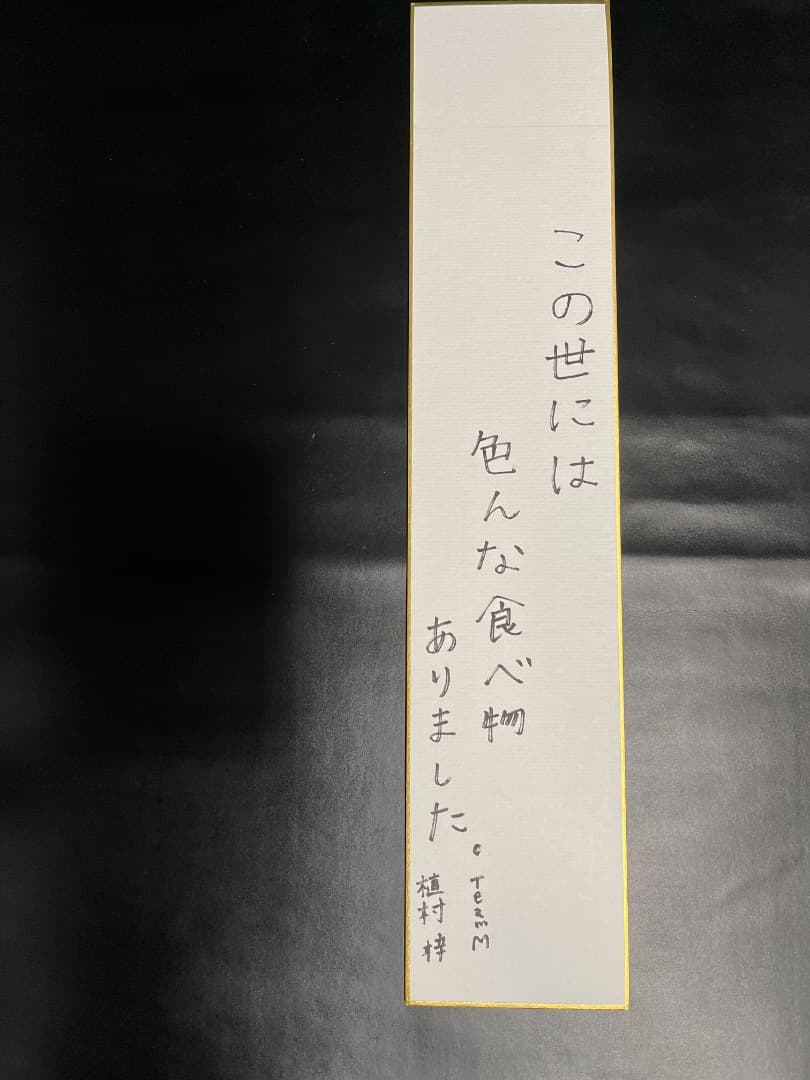 この世には
色んな食べ物
ありました。
c TeamM
植村梓